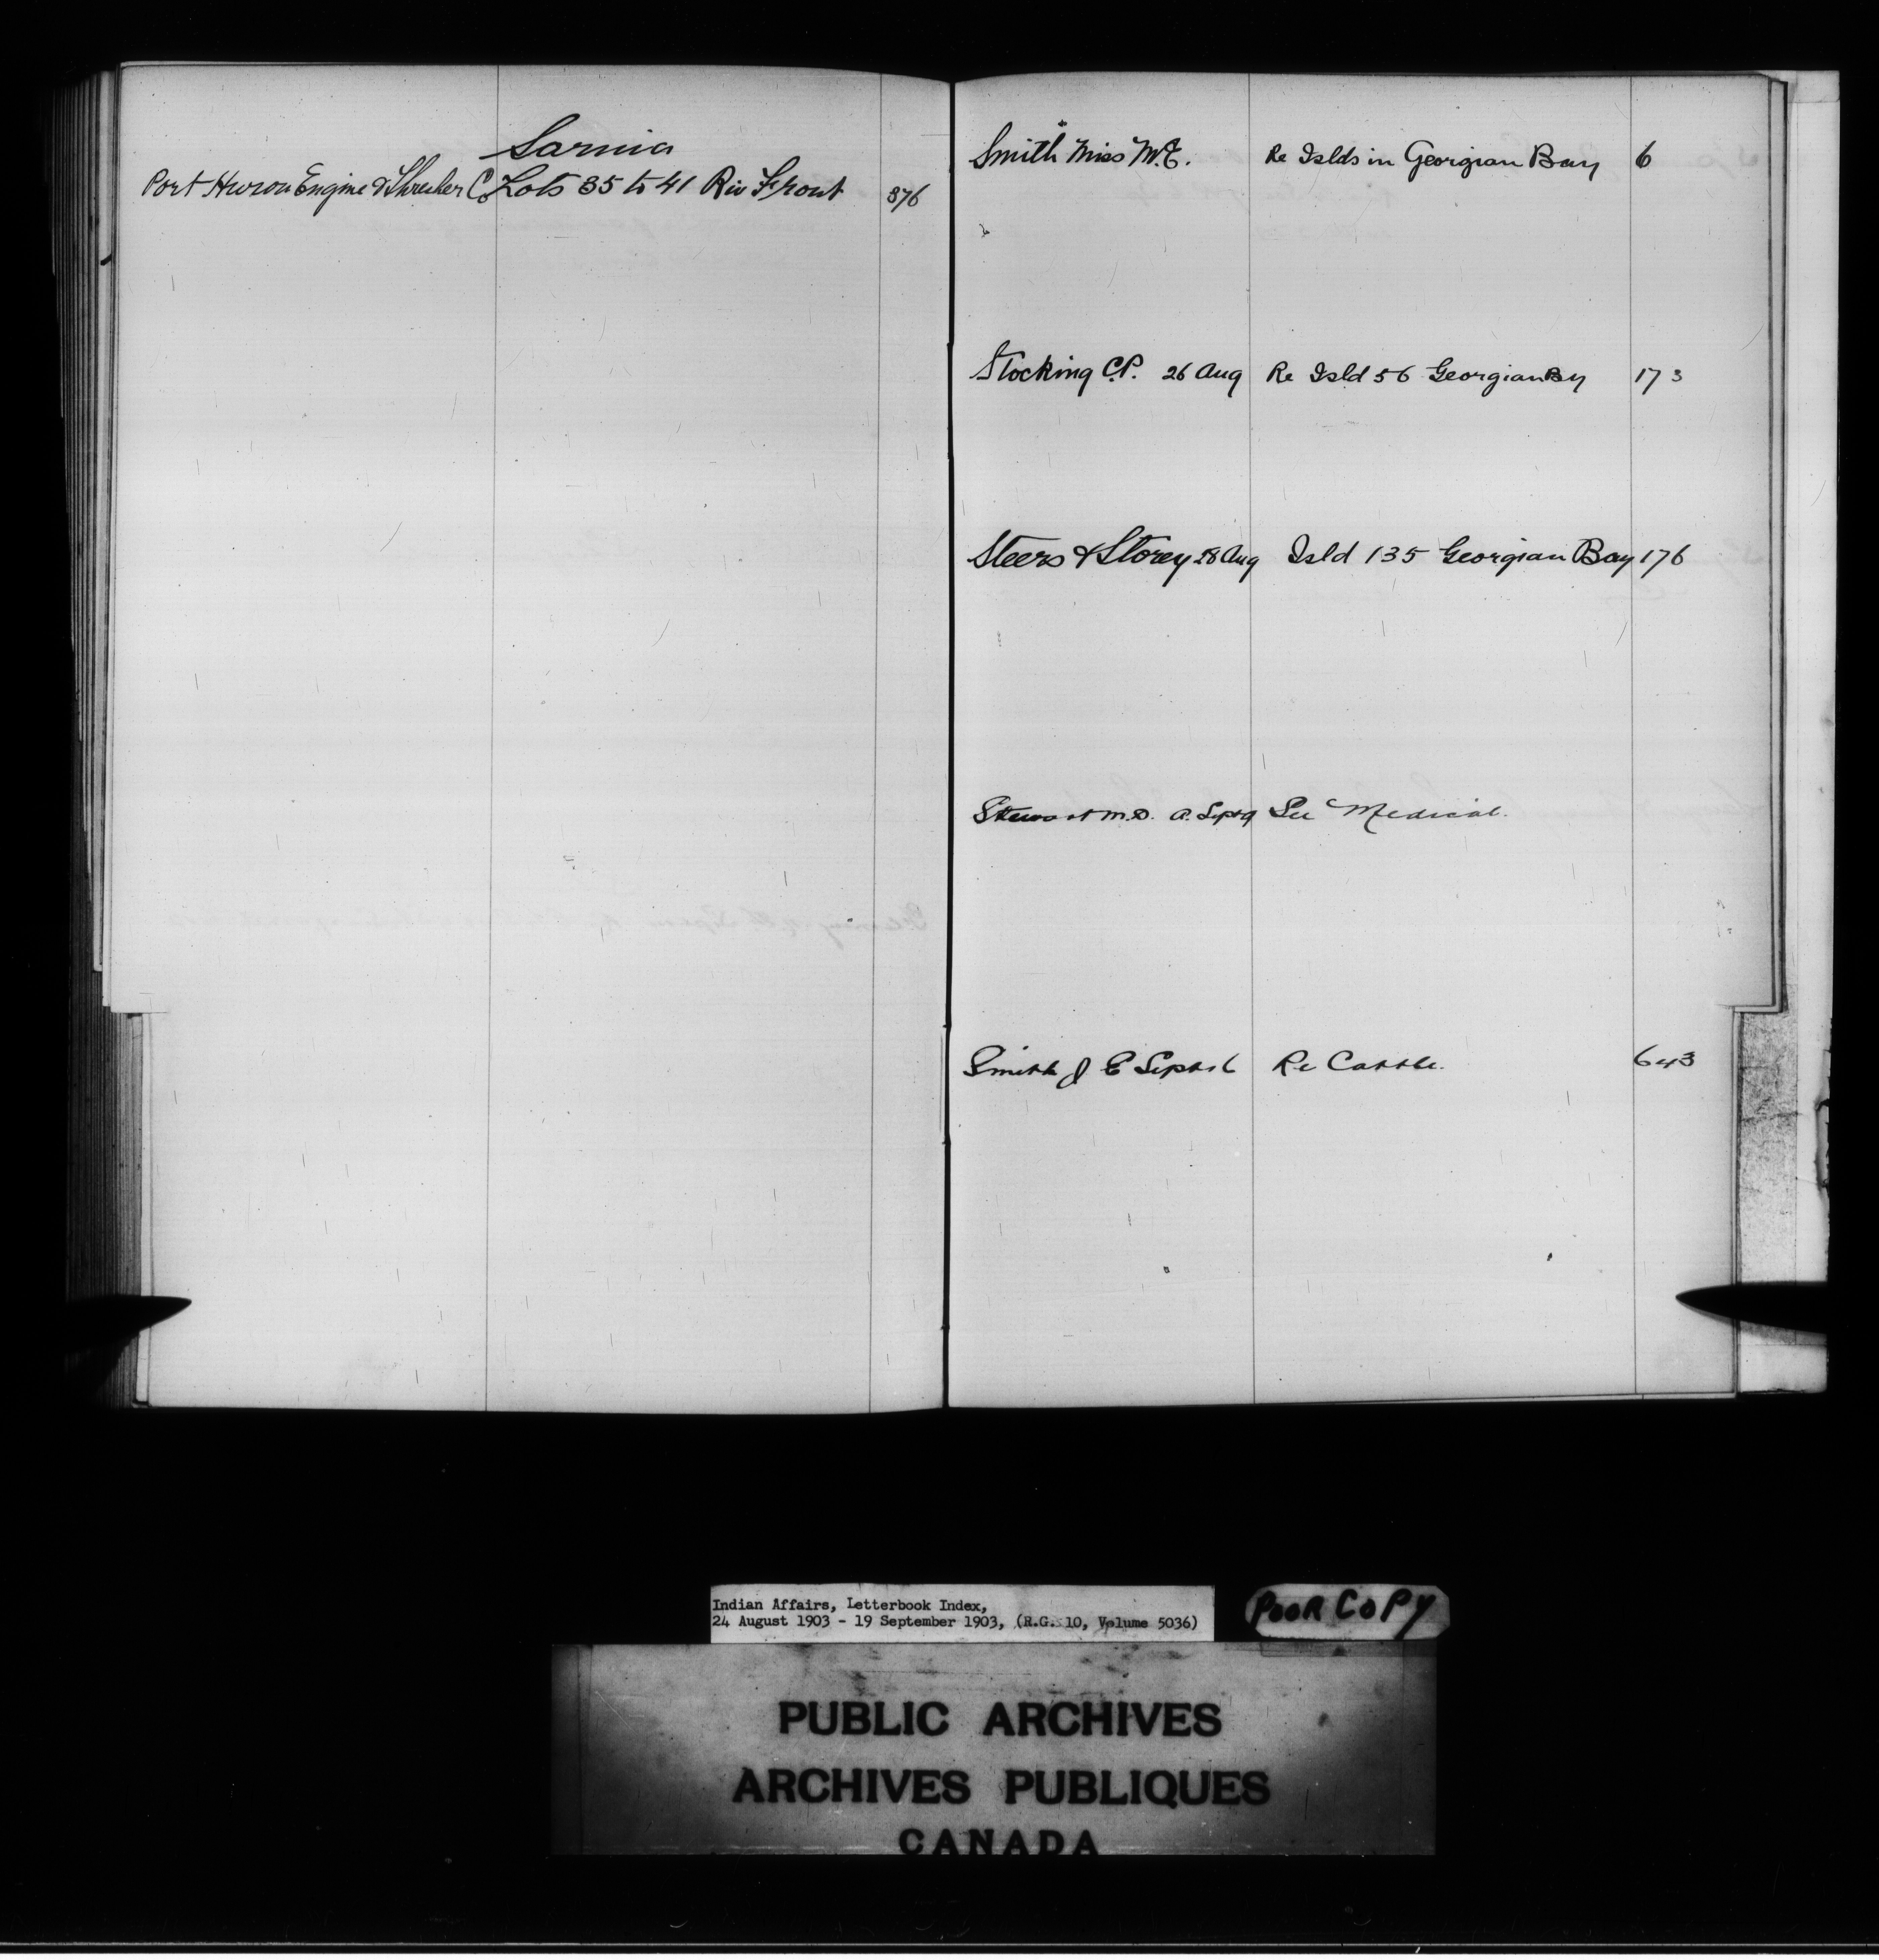 Sarnia
Port Huron Engine & Thresher Co Lots 35 to 41 Riv Front 376
Smith Miss M.E. Re Islds in Georgian Bay 6
Stocking C.P. 26 Aug Re Isld 56 Georgian By 173
Steers & Storey 28 Aug Isld 135 Georgian Bay 176
Stewart M.D. A. Sept 9 See Medical.
Smith J E Sept 16 Re Cattle. 643
Indian Affairs, Letterbook Index,
24 August 1903 - 19 September 1903, (R.G. 10, Volume 5036)
POOR COPY
PUBLIC ARCHIVES
ARCHIVES PUBLIQUES
CANADA